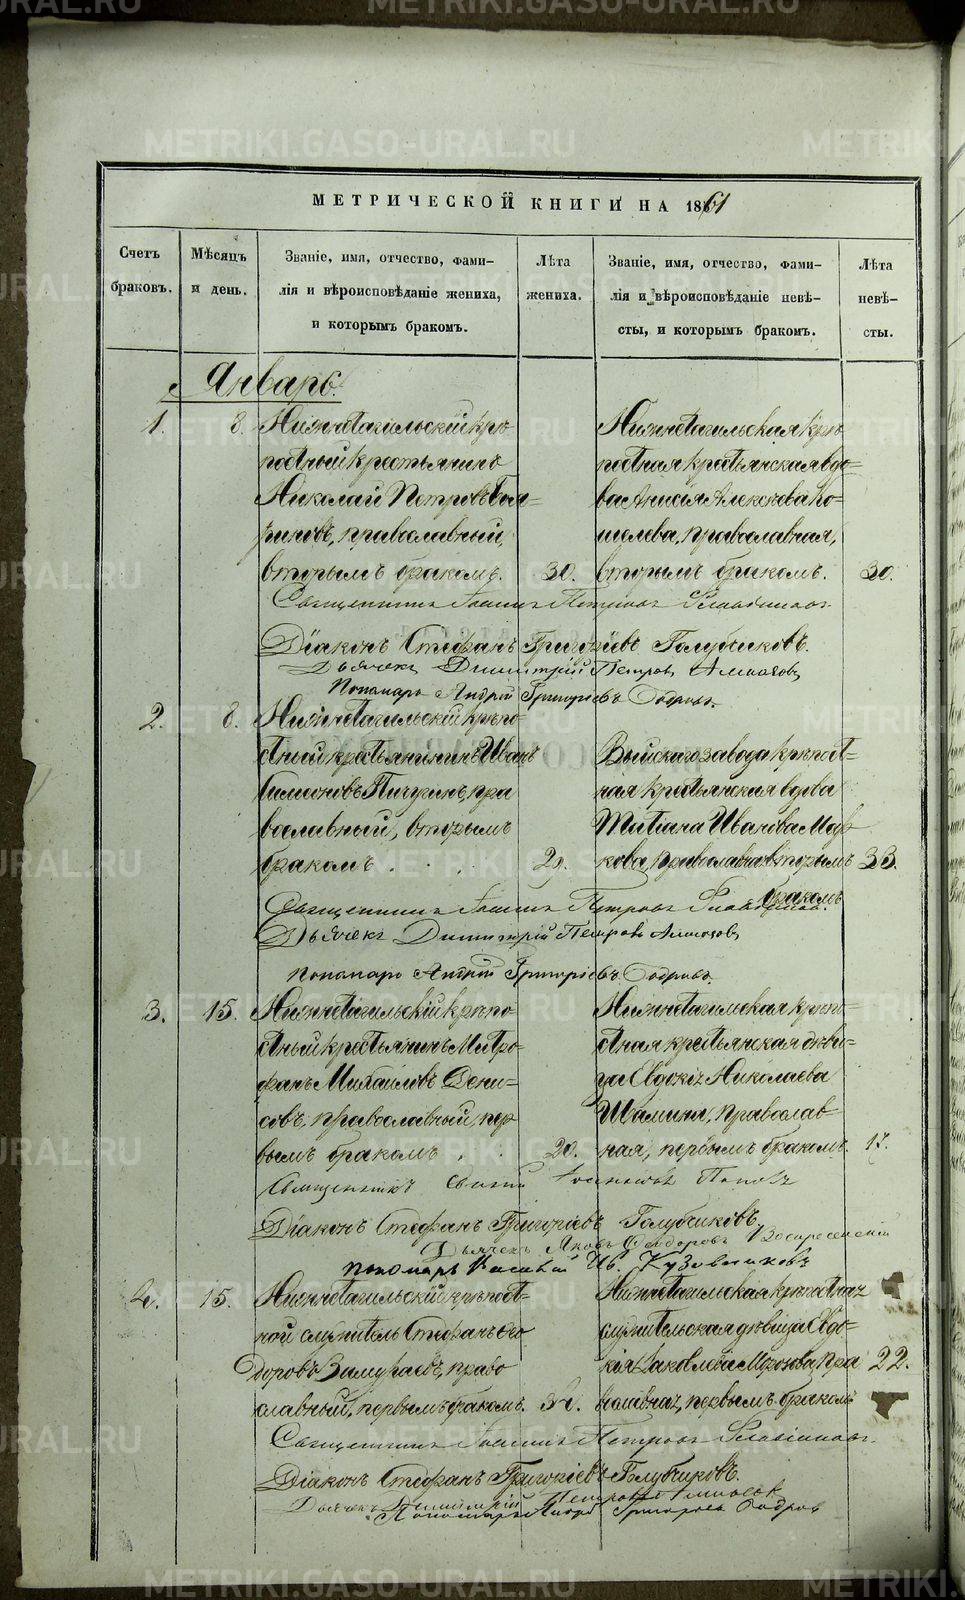 МЕТРИЧЕСКОЙ КНИГИ НА 1861
Счетъ браковъ.
Мѣсяцъ и день.
Званіе, имя, отчество, фами-
лія и вѣроисповѣданіе жениха,
и которымъ бракомъ.
Лѣта жениха.
Званіе, имя, отчество, фами-
лія и вѣроисповѣданіе невѣ-
сты, и которымъ бракомъ.
Лѣта невѣ-
сты.
Январь.
1. 8.
Нижнетагильскій крѣ
постный крестьянинъ
Николай Петровъ
риновъ, православный,
вторымъ бракомъ. 30.
Нижнетагильская крѣ
постная крестьянская вдо-
ва Анисія Алексѣева Ко-
шелева, православная,
вторымъ бракомъ. 30.
Священникъ Іоаннъ Петровъ
Діаконъ Стефанъ Григоріевъ Голубчиковъ.
Дьячекъ Димитрій Петровъ
Пономарь Андрей Григоріевъ
2. 8.
Нижнетагильскій крѣпо-
стный крестьянинъ Иванъ
Симеоновъ Пичугинъ, пра
вославный, вторымъ
бракомъ . . 29.
Выйскаго завода крѣпост-
ная крестьянская вдова
Татіана Иванова Мар
кова, православная, вторымъ 33.
бракомъ
Священникъ Іоаннъ Петровъ
Дьячекъ Димитрій Петровъ
Пономарь Андрей Григоріевъ
3. 15.
Нижнетагильскій крѣпо-
стный крестьянинъ Митро-
фанъ Михайловъ Дени-
совъ, православный, пер
вымъ бракомъ . . 20.
Нижнетагильская крѣпо-
стная крестьянская дѣви-
ца Евдокія Николаева
Шамина, православ-
ная, первымъ бракомъ. 17.
Священникъ Іоанновъ Поповъ
Діаконъ Стефанъ Григоріевъ Голубчиковъ.
Дьячекъ Яковъ Ѳеодоровъ Воскресенскій
Пономарь Василій Ив. Кузовниковъ
4. 15.
Нижнетагильскій крѣпост-
ной служитель Стефанъ Ѳео
доровъ право
славный, первымъ бракомъ.
Нижнетагильская крѣпостная
служительская дѣвица Евдо-
кія Яковлева пра 22.
вославная, первымъ бракомъ
Священникъ Іоаннъ Петровъ
Діаконъ Стефанъ Григоріевъ Голубчиковъ.
Дьячекъ Димитрій Петровъ
Пономарь Андрей Григоріевъ
METRIKI.GASO-URAL.RU